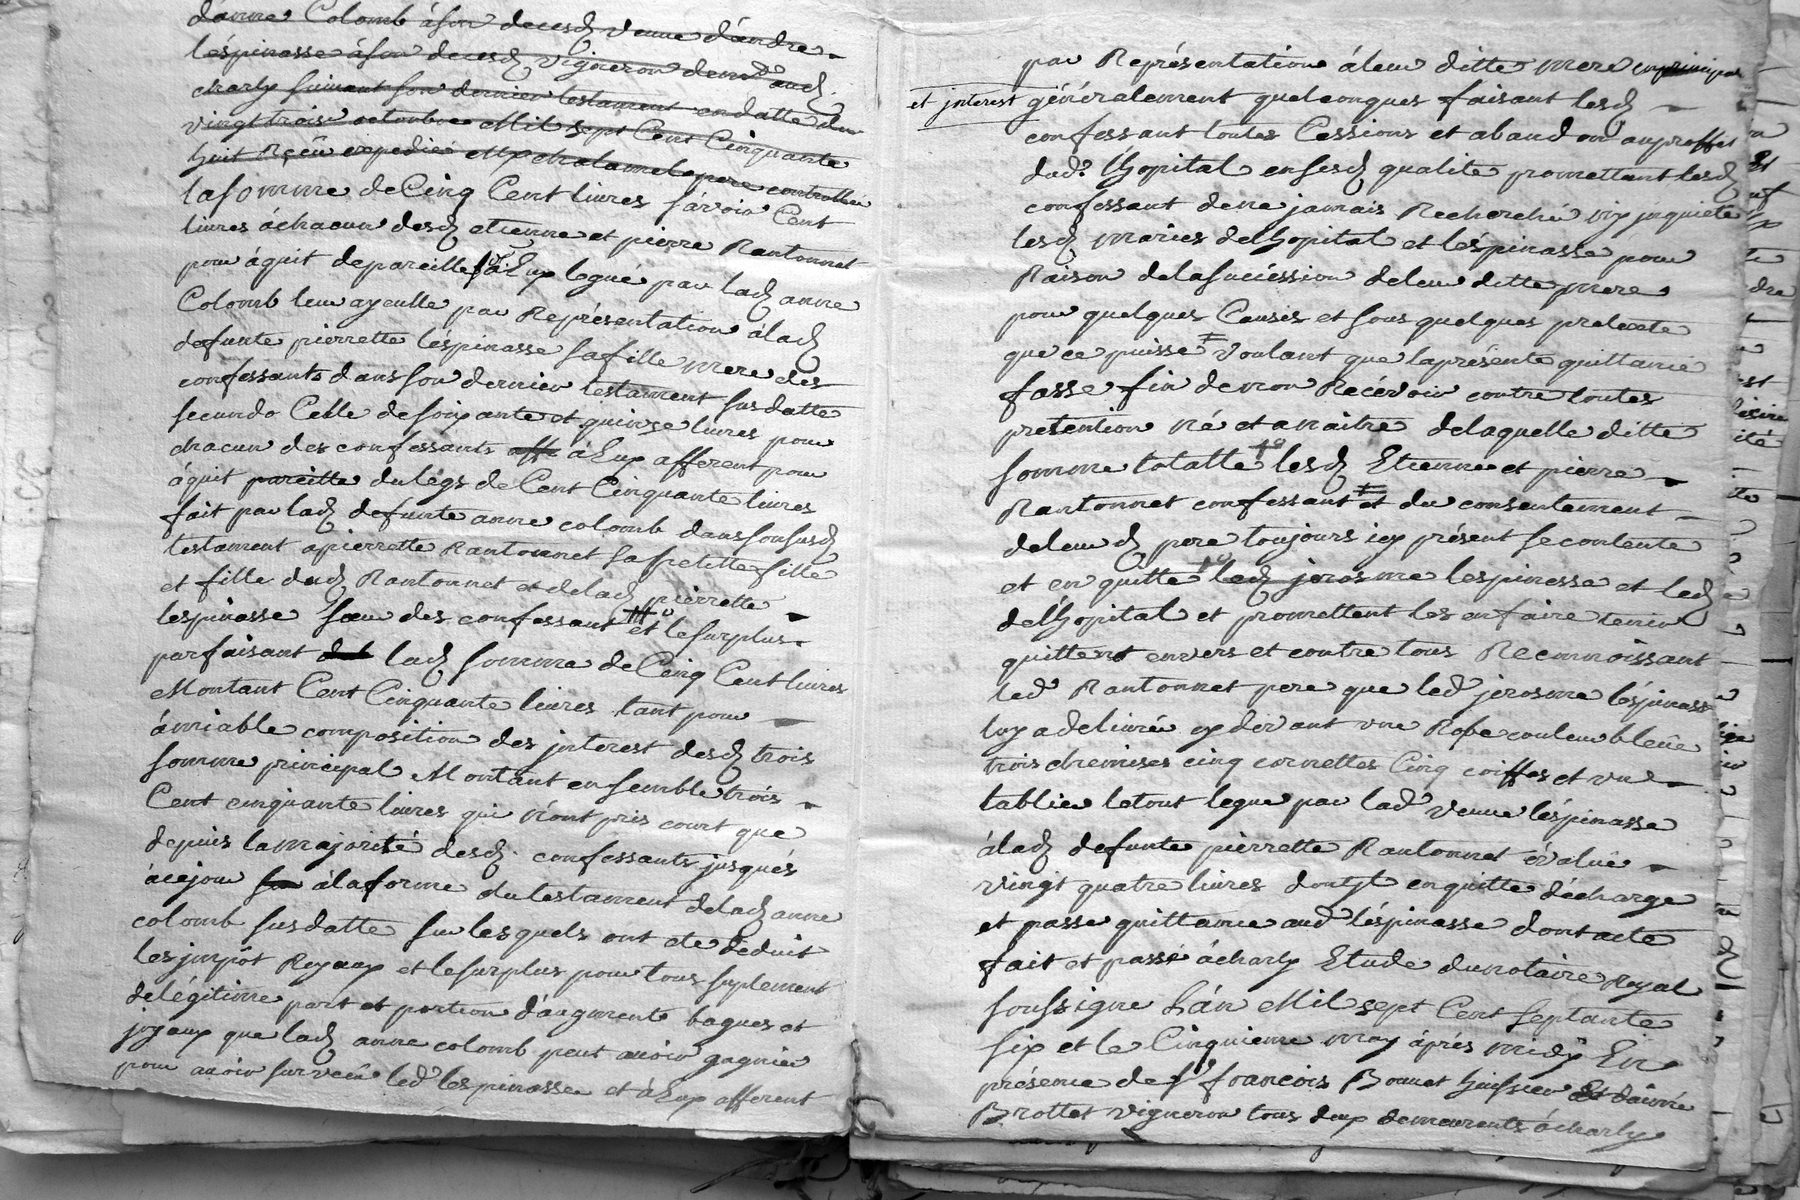 d'anne Colomb à son decesd veuve d'andre
léspinasse à son decesd vigneron demt aud
charly suivant son dernier testament en datte du
vingt trois octoubre Mil sept Cent Cinquante
huit Reçeu expedié Me chalamel pere controllé
la somme de Cinq Cent livres sávoir Cent
livres áchacun desd etienne et pierre Rantonnet
pour áquit de pareille à Eux legué par lad anne
Colomb leur ayeulle par Représentation álad
defunte pierrette léspinasse sa fille mere des
confessants dans son dernier testament susdatte
secundo Celle de soixante et quinze livres pour
chacun des confessants à Eux afferent pour
áquit pareille du légs de Cent Cinquante livres
fait par lad defunte anne colomb dans son susd
testament a pierrette Rantonnet sa petitte fille
et fille dud Rantonnet et delad pierrette
lespinasse sœur des confessant et le surplus
parfaisant lad somme de Cinq Cent livres
Montant Cent Cinquante livres tant pour
ámiable composition des jnterest desd trois
somme principal Montant ensemble trois
Cent cinquante livres qui n'ont pris court que
depuis la majorité desd confessants jusqués
áce jour á la forme du testament delad anne
colomb susdatte sur lesquels ont ete déduit
les jmpôt Royaux et le surplus pour tous suplement
de légitime part et portion d'augment bagues et
joyaux que lad anne colomb peut avoir gagnée
pour avoir survecû led lespinasse et á Eux afferent
par Représentation áleur ditte mere en principal
et jnterest généralement quelconques faisant lesd
confessant toutes Cessions et abandon au proffit
dud. l'hopital en sesd qualite promettant lesd
confessant de ne jamais Recherché ny jnquieté
lesd maries del'hopital et léspinasse pour
Raison de la succéssion de leur ditte mere
pour quelques Causes et sous quelques pretexte
que ce puisse voulant que la présente quittance
fasse fin de non Recévoir contre toutes
pretention né et a naitre de laquelle ditte
somme totalle lesd Etienne et pierre
Rantonnet confessant et du consentement
de leurd pere toujours icy présent se contente
et en quitte led jerosme lespinasse et led
del'hopital et promettent les en faire tenir
quittent envers et contre tous Reconnoissant
led Rantonnet pere que led jerosme léspinasse
luy a delivré cy devant une Robe couleur bleüe
trois chemises cinq cornettes Cinq coiffes et un
tablier le tout legué par lad veuve léspinasse
álad defunte pierrette Rantonnet évalué
vingt quatre livres dont jl en quitte décharge
et passe quittance aud léspinasse dont acte
fait et passé ácharly Etude du notaire Royal
soussigné L'án Mil sept Cent septante
six et le Cinquieme may áprés midy En
présence de sr francois Bonnet huissier et d'aimé
Brottet vigneron tous deux demeurants ácharly